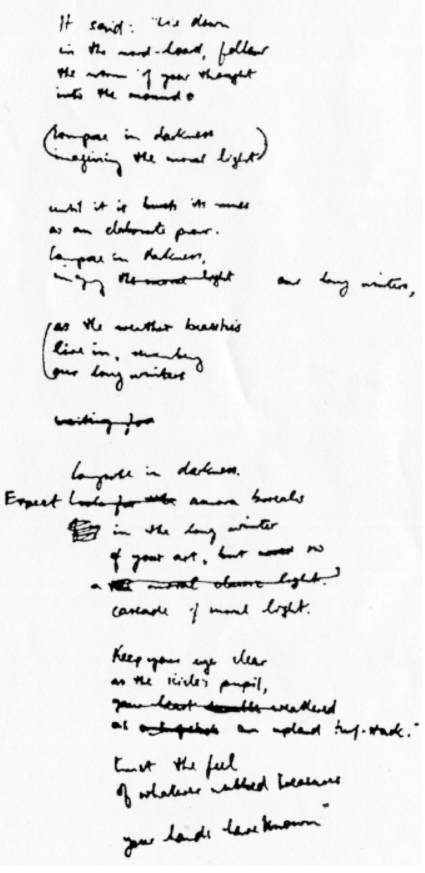 It said: "Lie down
in the word-hoard, follow
the worm of your thought
into the mound.
(Compose in darkness
imagining the moral light)
until it is its
as an elaborate
Compose in darkness,
the moral light our long winters,
as the weather
live in, remembering
our long winters
waiting for
Compose in darkness.
Expect Look for the aurora borealis
in the long winter
of your art, but no
a the moral light.
cascade of moral light.
Keep your eye clear
as the icicle's pupil,
your heart weathered
as an upland turf-stack."
trust the feel
of whatever nubbed treasures
your hands have known"